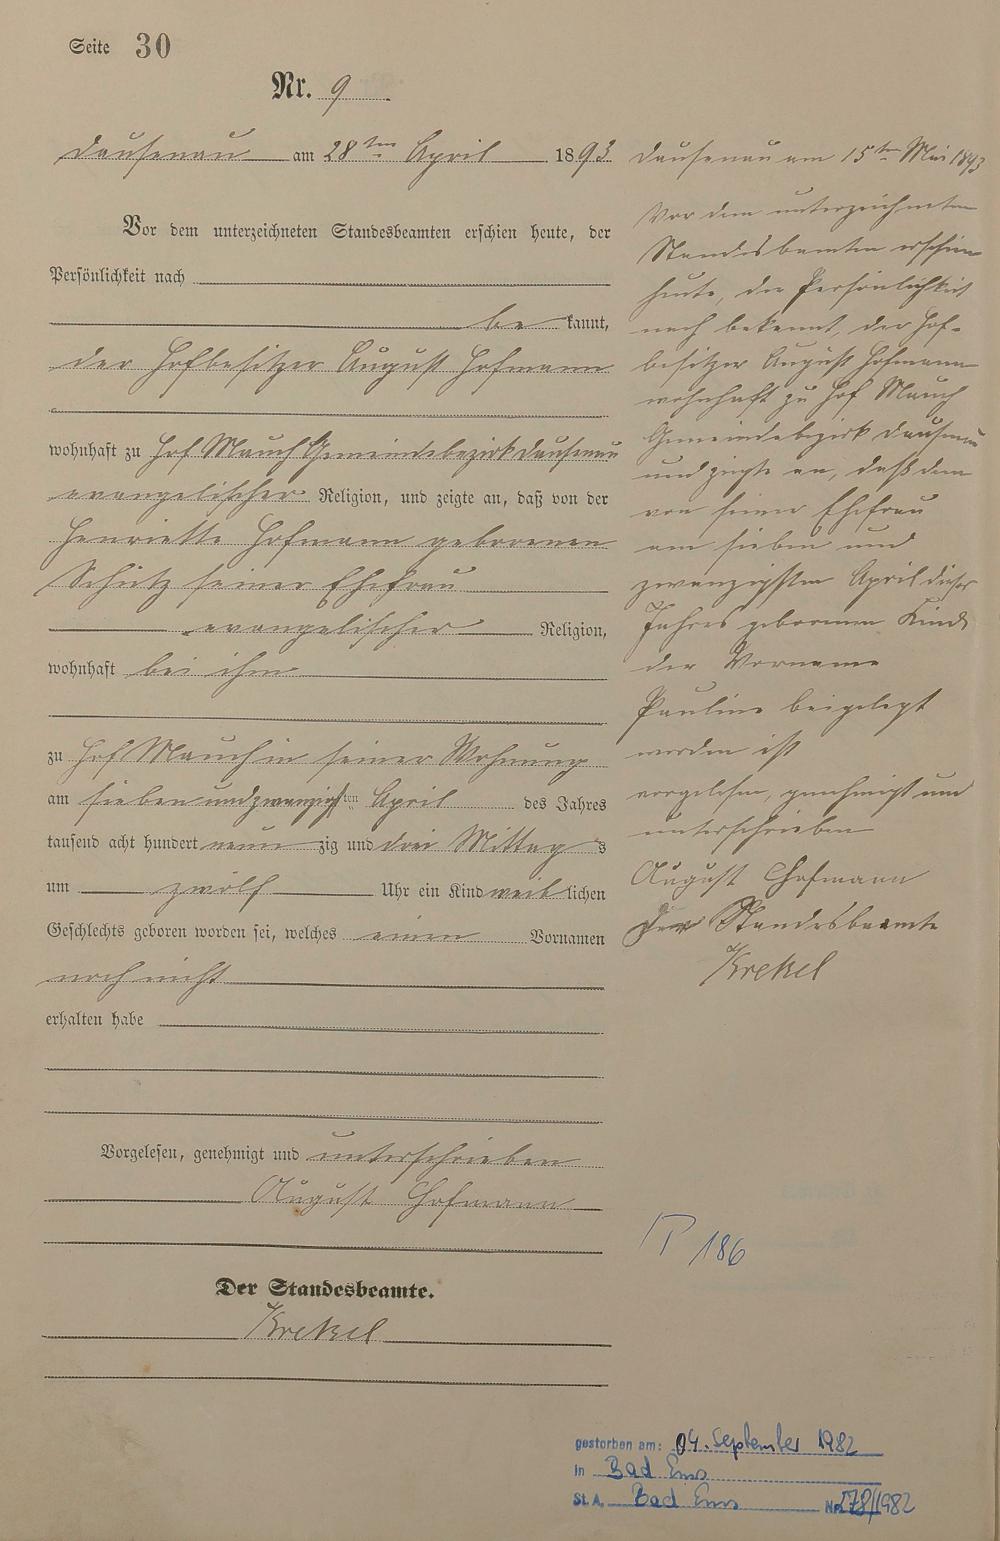 Seite 30
Nr. 9
Dausenau am 28ten April 1893
Vor dem unterzeichneten Standesbeamten erschien heute, der
Persönlichkeit nach
be kannt,
der Hofbesitzer August Hofmann
wohnhaft zu Hof Mauch Gemeindebezirk Dausenau
evangelischer Religion, und zeigte an, daß von der
Henriette Hofmann geborenen
Schütz seiner Ehefrau
evangelischer Religion,
wohnhaft bei ihm
zu Hof Mauch in seiner Wohnung
am sieben und zwanzigsten April des Jahres
tausend acht hundert neun zig und drei Mittag s
um zwölf Uhr ein Kind weib lichen
Geschlechts geboren worden sei, welches einen Vornamen
noch nicht
erhalten habe
Vorgelesen, genehmigt und unterschrieben
August Hofmann
Der Standesbeamte.
Krekel
Dausenau am 15ten Mai 1893
Vor dem unterzeichneten
Standesbeamten erschien
heute, der Persönlichkeit
nach bekannt, der Hof-
besitzer August Hofmann
wohnhaft zu Hof Mauch
Gemeindebezirk Dausenau
und zeigte an, daß dem
von seiner Ehefrau
am sieben und
zwanzigsten April dieses
Jahres geborenen Kinde
der Vorname
Pauline beigelegt
worden ist
vorgelesen, genehmigt und
unterschrieben
August Hofmann
Der Standesbeamte
Krekel
186
gestorben am: 04. September 1982
in Bad Ems
St.A. Bad Ems Nr. 278/1982